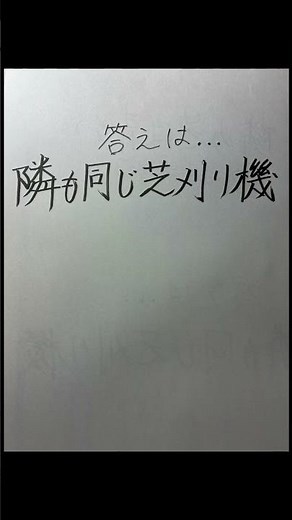 答えは...
隣も同じ芝刈り機